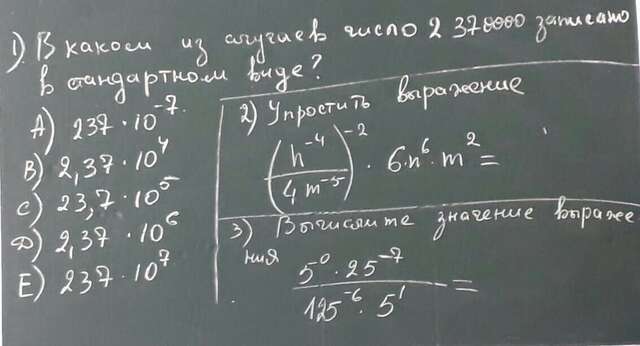 1) В каком из случаев число 2 370000 записано
в стандартном виде?
A) 237 · 10⁻⁷
B) 2,37 · 10⁴
C) 23,7 · 10⁵
D) 2,37 · 10⁶
E) 237 · 10⁷
2) Упростить выражение
(n⁻⁴ / 4m⁻⁵)⁻² · 6 · n⁶ · m² =
3) Вычислите значение выраже
ния
5⁰ · 25⁻⁷ / 125⁻⁶ · 5¹ =